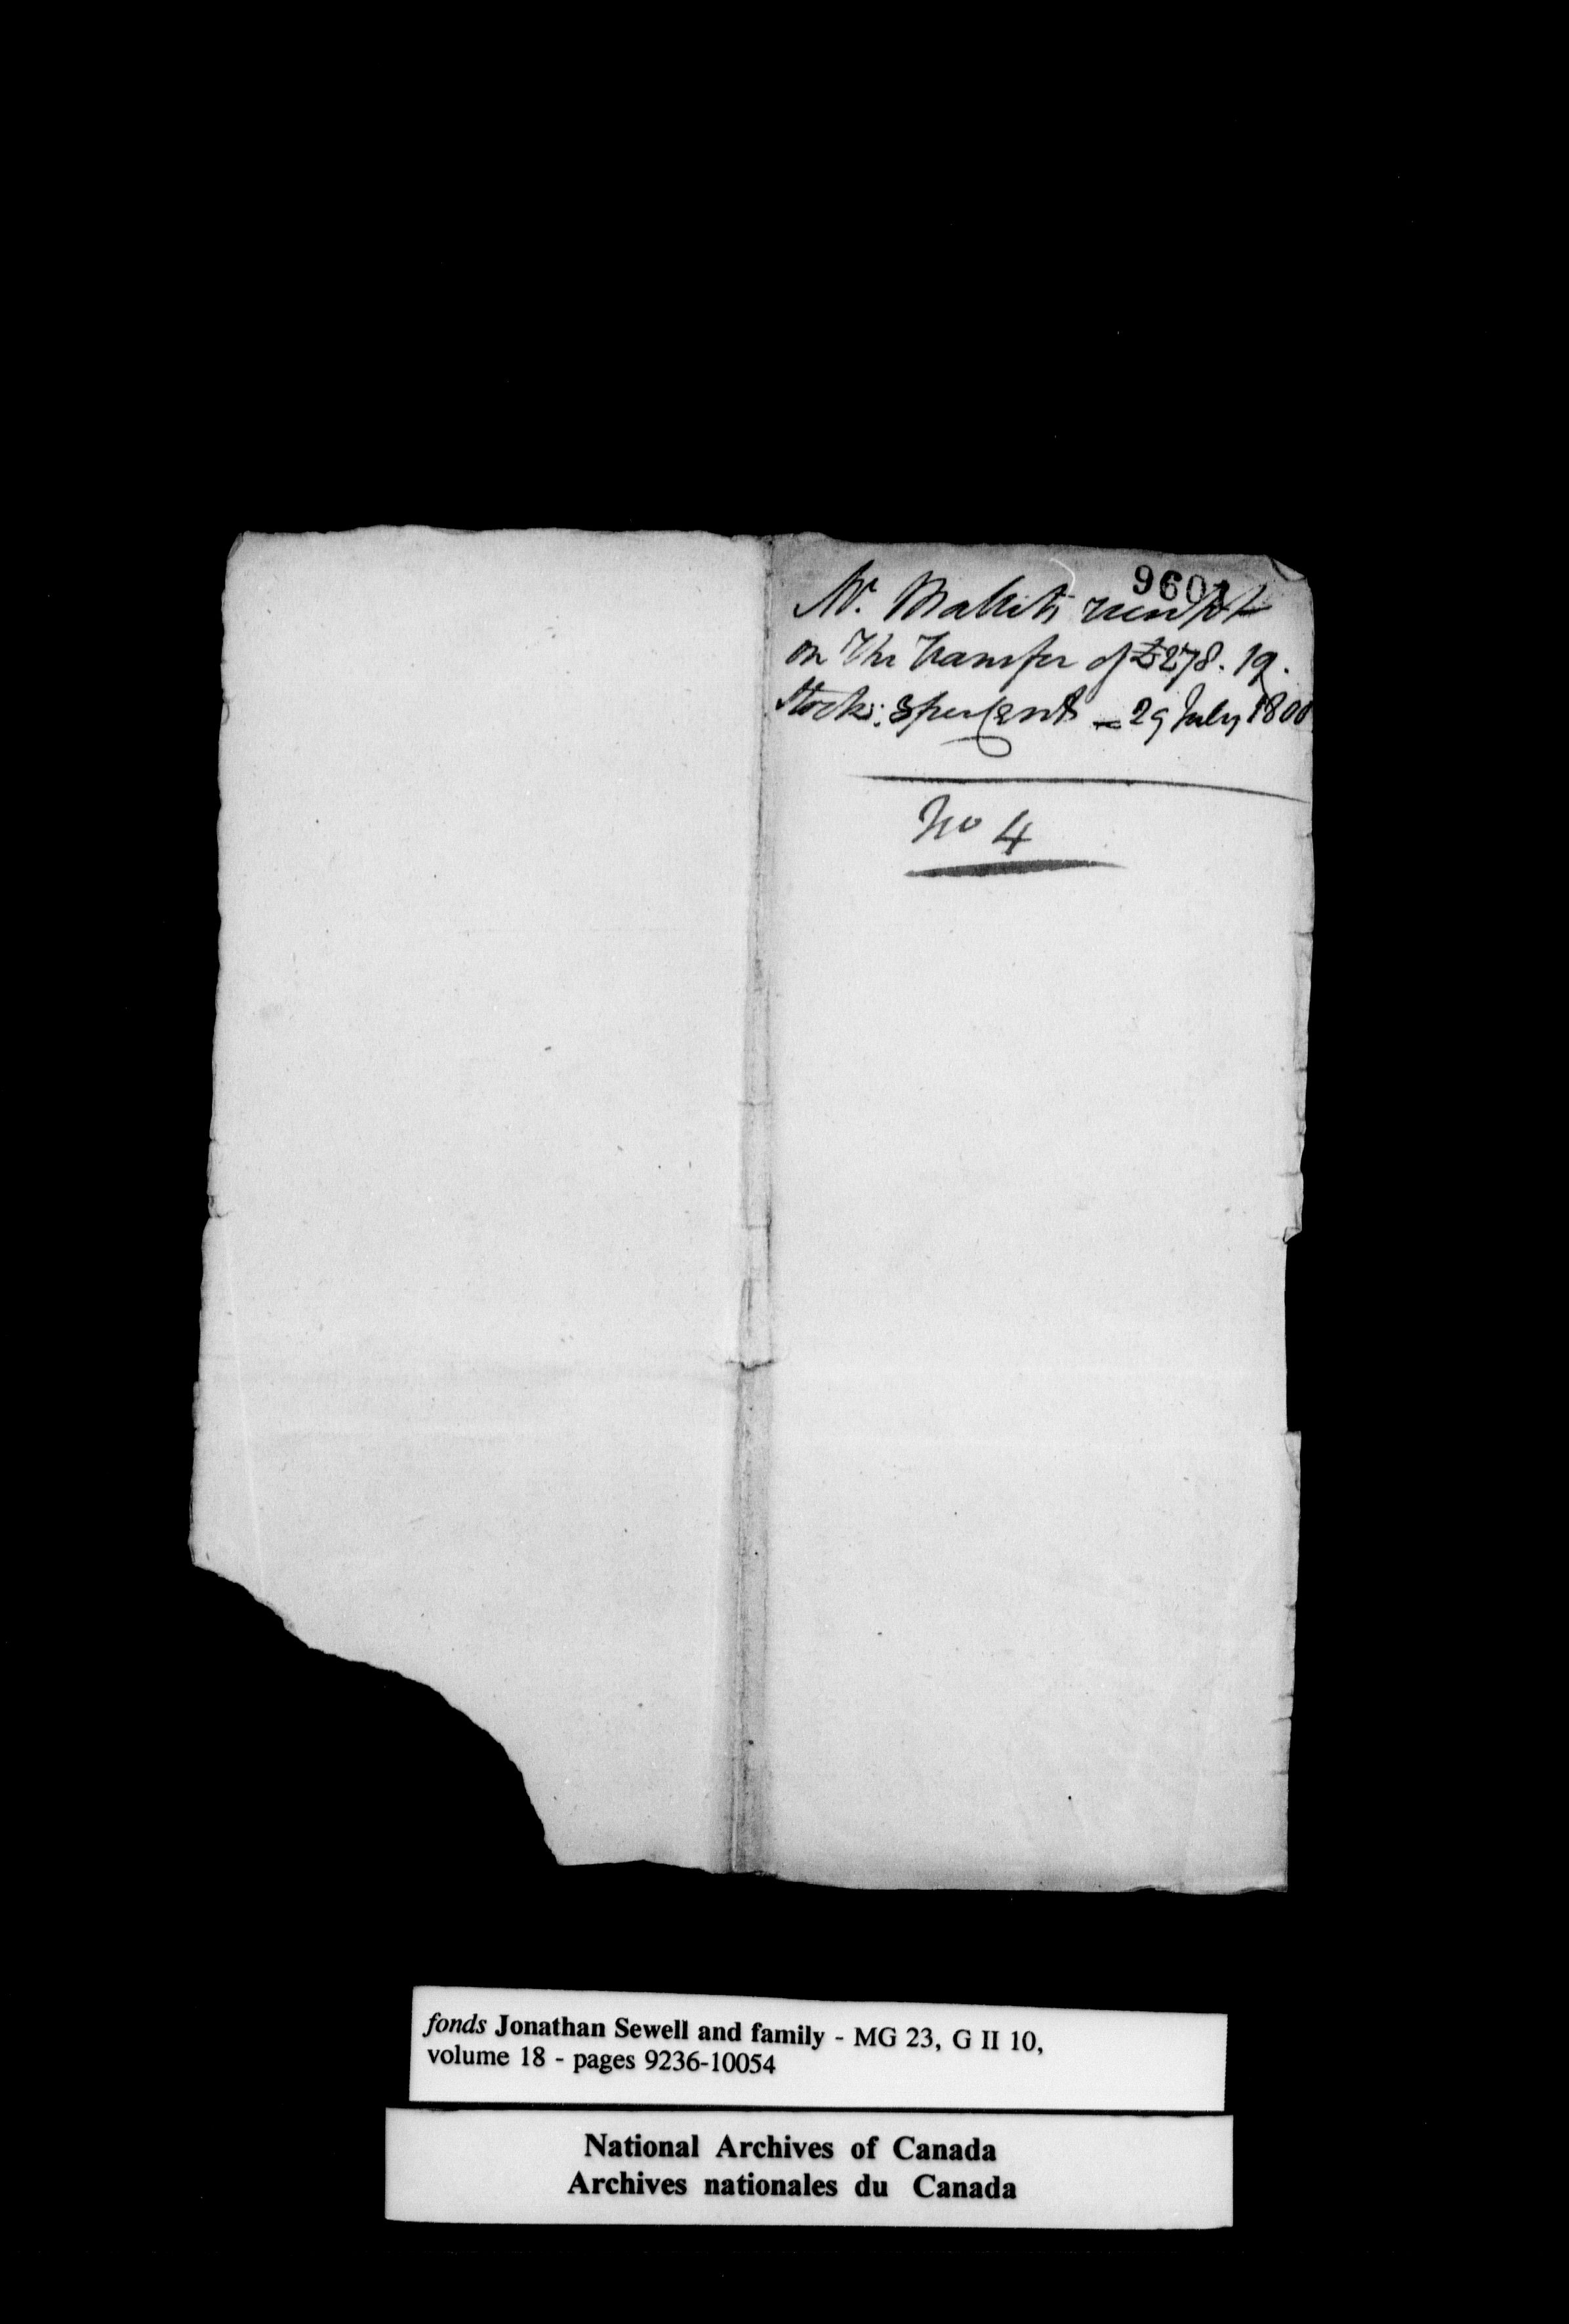 receipt
on the Transfer of £278. 19.
Stock: 3 per Cents - 29 July 1800
No 4
fonds Jonathan Sewell and family - MG 23, G II 10,
volume 18 - pages 9236-10054
National Archives of Canada
Archives nationales du Canada